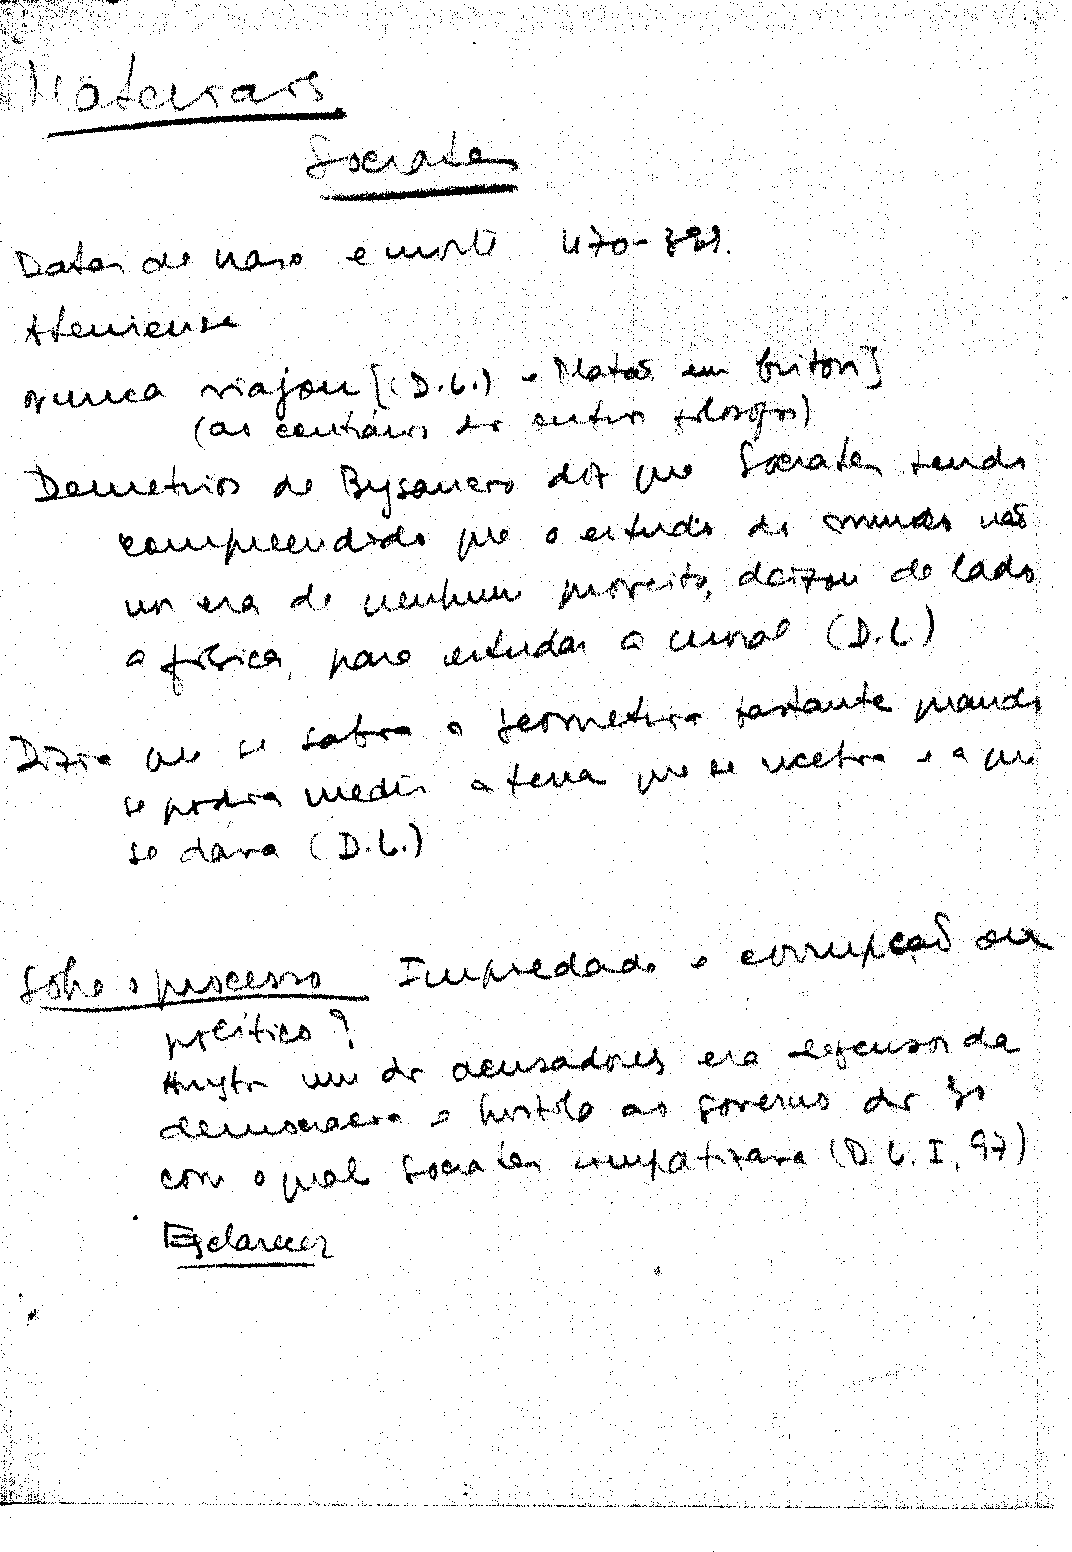 Materiais
Socrates
Datas de nasc e morte 470-399.
Ateniense
Nunca viajou [(D.L.) e Platão em Criton]
(ao contrário de outros filosofos)
Demetrios de Bysancio diz que Socrates tendo
compreendido que o estudo do mundo não
nos era de nenhum proveito, deixou de lado
a fisica, para estudar a moral (D.L)
Dizia que se sabia a geometria bastante quando
se podia medir a terra que se recebia e a que
se dava (D.L.)
Sobre o processo Impiedade e corrupção ou
politico?
Anyto um dos acusadores era defensor da
democracia e hostil ao governo dos 30
com o qual Socrates simpatizava (D.L. I, 97)
Esclarecer